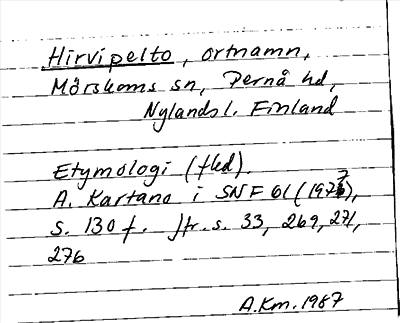 Hirvipelto, ortnamn,
Mörskoms sn, Pernå hd,
Nylands l. Finland
Etymologi (fkd).
A. Kartano i SNF 61 (1977),
s. 130 f. Jfr. s. 33, 269, 271,
276
A.Km. 1987